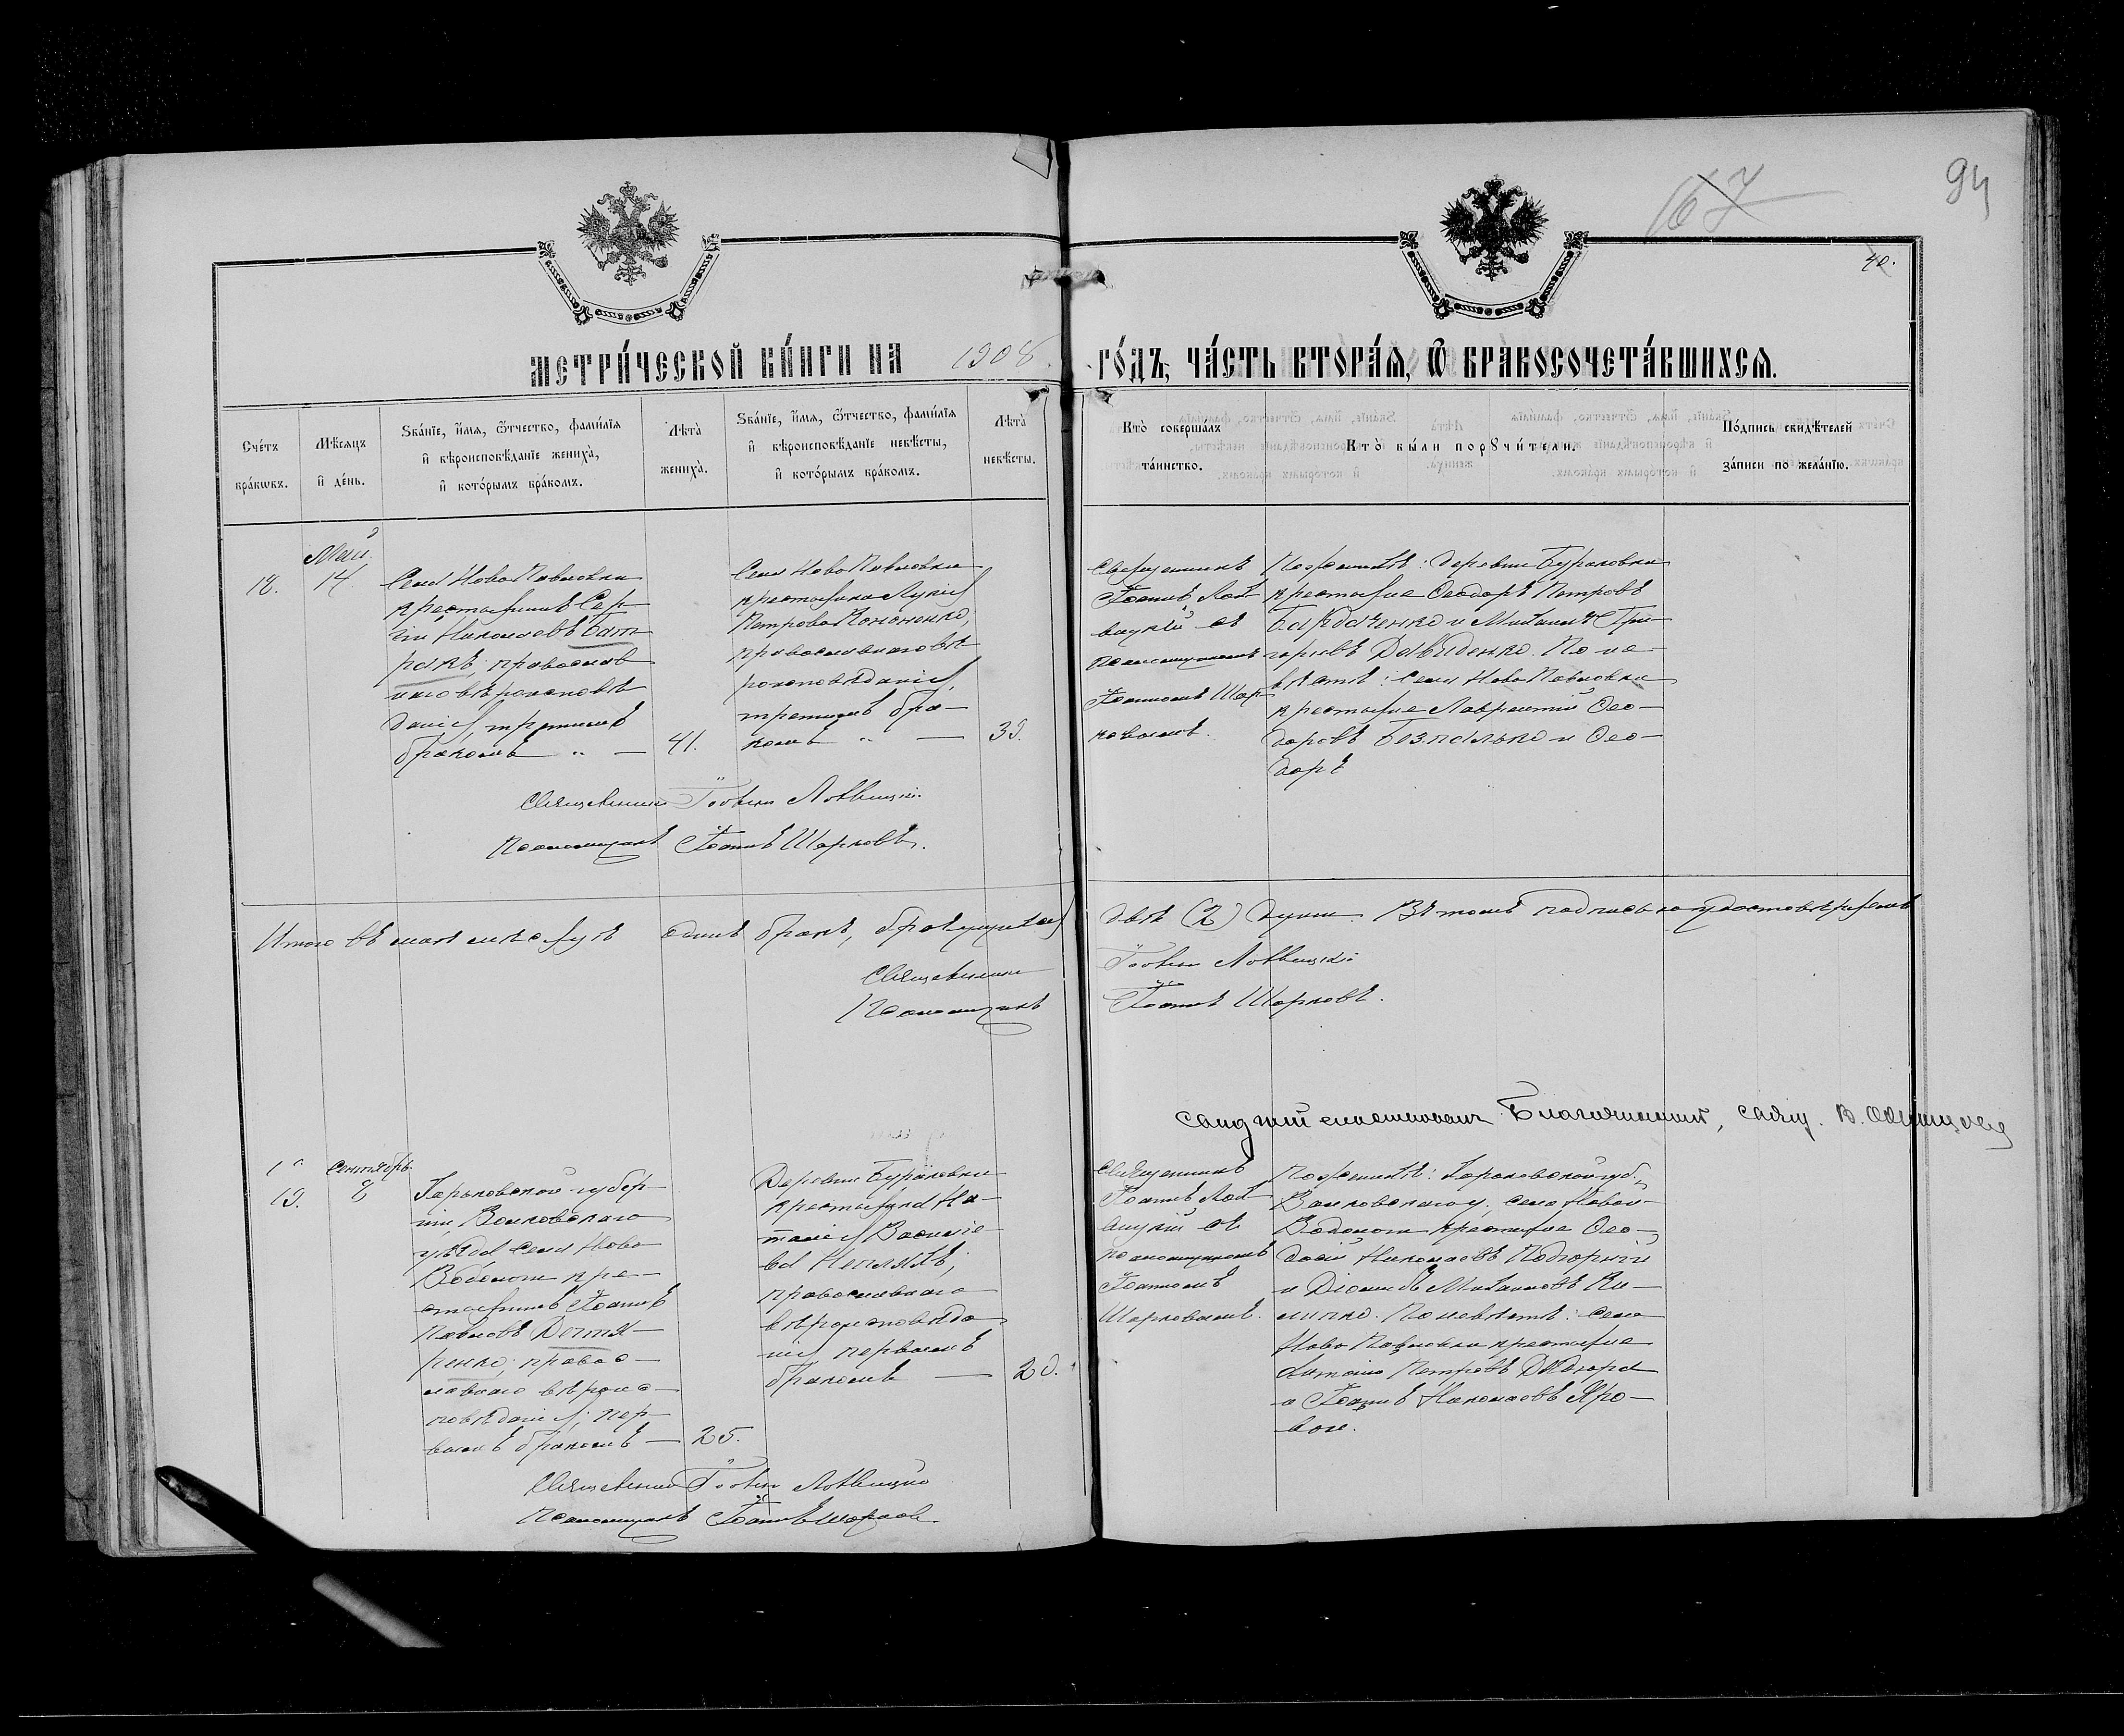 67
94
40.
МЕТРИ́ЧЕСКОЙ КНИ́ГИ НА 1908 ГО́ДЪ, ЧА́СТЬ ВТОРА́Ѧ, Ѿ БРАКОСОЧЕТА́ВШИХСѦ.
Сче́тъ бра́кѡвъ.
Мѣ́сѧцъ и҆ де́нь.
Ѕва́нїе, и҆́мѧ, ѻ҆́тчество, фамилїѧ
и҆ вѣроисповѣ́данїе жениха̀,
и҆ кото́рымъ бра́комъ.
Лѣ́та жениха̀.
Ѕва́нїе, и҆́мѧ, ѻ҆́тчество, фамилїѧ
и҆ вѣроисповѣ́данїе невѣ́сты,
и҆ кото́рымъ бра́комъ.
Лѣ́та невѣ́сты.
Кто̀ соверша́лъ та́инство.
Кто̀ бы́ли порꙋчи́тели.
По́дпись свидѣ́телей за́писи по жела́нїю.
18.
Май
14.
Села Ново Павловки
крестьянинъ Сер-
гій Николаевъ Бат-
ракъ, православ
наго вѣроисповѣ
данія, третьимъ
бракомъ " —
41.
Села Ново Павловки
крестьянка Лукія
Петрова Кононенко,
православнаго вѣ
роисповѣданія,
третьимъ бра-
комъ " —
39.
Священникъ
Іоаннъ Лот
вицкій съ
псаломщикомъ
Іоанномъ Шар
ковымъ.
По женихѣ: деревни Бураковки
крестьяне Ѳеодоръ Петровъ
Бардаченко и Михаилъ Гри-
горьевъ Давиденко. По не-
вѣстѣ: села Ново Павловки
крестьяне Лаврентій Ѳео-
доровъ Безпалько и Ѳео-
доръ
Священникъ Іоаннъ Лотвицкій.
Псаломщикъ Іоаннъ Шарковъ.
Итого въ маѣ мѣсяцѣ одинъ бракъ, бракующихся двѣ (2) души. Въ томъ подписью удостовѣряемъ
Священникъ Іоаннъ Лотвицкій
Псаломщикъ Іоаннъ Шарковъ.
Благочинный, свящ. В.
19.
Сентябрь
8
Харьковской губер-
ніи, Валковскаго
уѣзда села Ново
Водолаги кре-
стьянинъ Іоаннъ
Павловъ Дегтя-
ренко, правос-
лавнаго вѣроис-
повѣданія, пер-
вымъ бракомъ —
25.
Деревни Бураковки
крестьянка На-
талія Василье-
ва Непляхъ,
православнаго
вѣроисповѣда
нія первымъ
бракомъ —
20.
Священникъ
Іоаннъ Лот
вицкій съ
псаломщикомъ
Іоанномъ
Шарковымъ.
По женихѣ: Харьковской губ.,
Валковскаго у., села Новой-
Водолаги крестьяне Ѳео-
досій Николаевъ Подгорный
и Діомидъ Михаиловъ Ки-
липко. По невѣстѣ: села
Ново Павловки крестьяне
Антоній Петровъ Дзюра
и Іоаннъ Николаевъ Яро-
вой.
Священникъ Іоаннъ Лотвицкій
Псаломщикъ Іоаннъ Шарковъ.